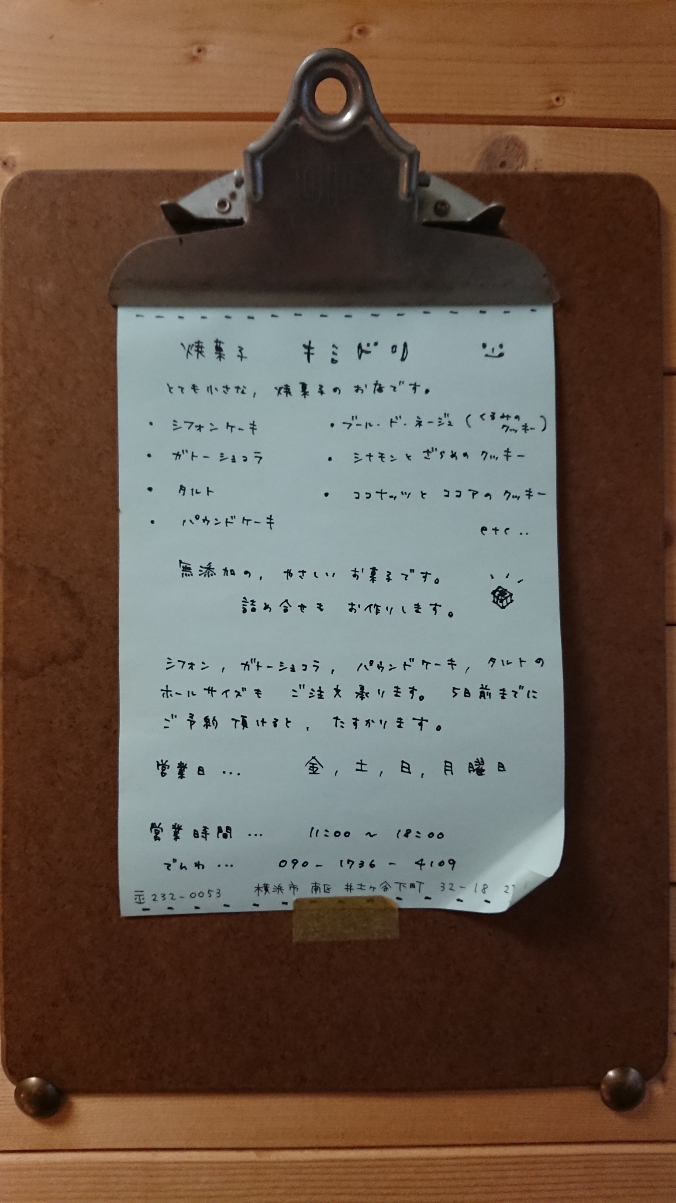 焼菓子 キミドリ
とても小さな, 焼菓子のお店です。
・ シフォンケーキ
・ ガトーショコラ
・ タルト
・ パウンドケーキ
・ブール・ド・ネージュ (くるみのクッキー)
・ シナモンとざらめのクッキー
・ ココナッツとココアのクッキー
etc..
無添加の, やさしいお菓子です。
詰め合せもお作りします。
シフォン, ガトーショコラ, パウンドケーキ, タルトの
ホールサイズも ご注文承ります。 5日前までに
ご予約頂けると, たすかります。
営業日 ... 金, 土, 日, 月曜日
営業時間 ... 11:00 ~ 18:00
でんわ ... 090-1736-4109
〒232-0053 横浜市 南区 井土ヶ谷下町 32-18